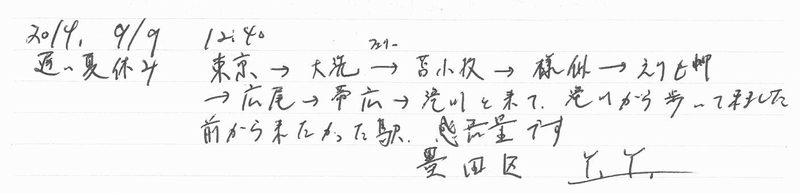 2014. 9/9 12:40
遅い夏休み 東京→大洗→フェリー→苫小牧→様似→えりも岬
→広尾→帯広→滝川と来て、滝川から歩いて来ました
前から来たかった駅。感無量です
墨田区 Y.Y.